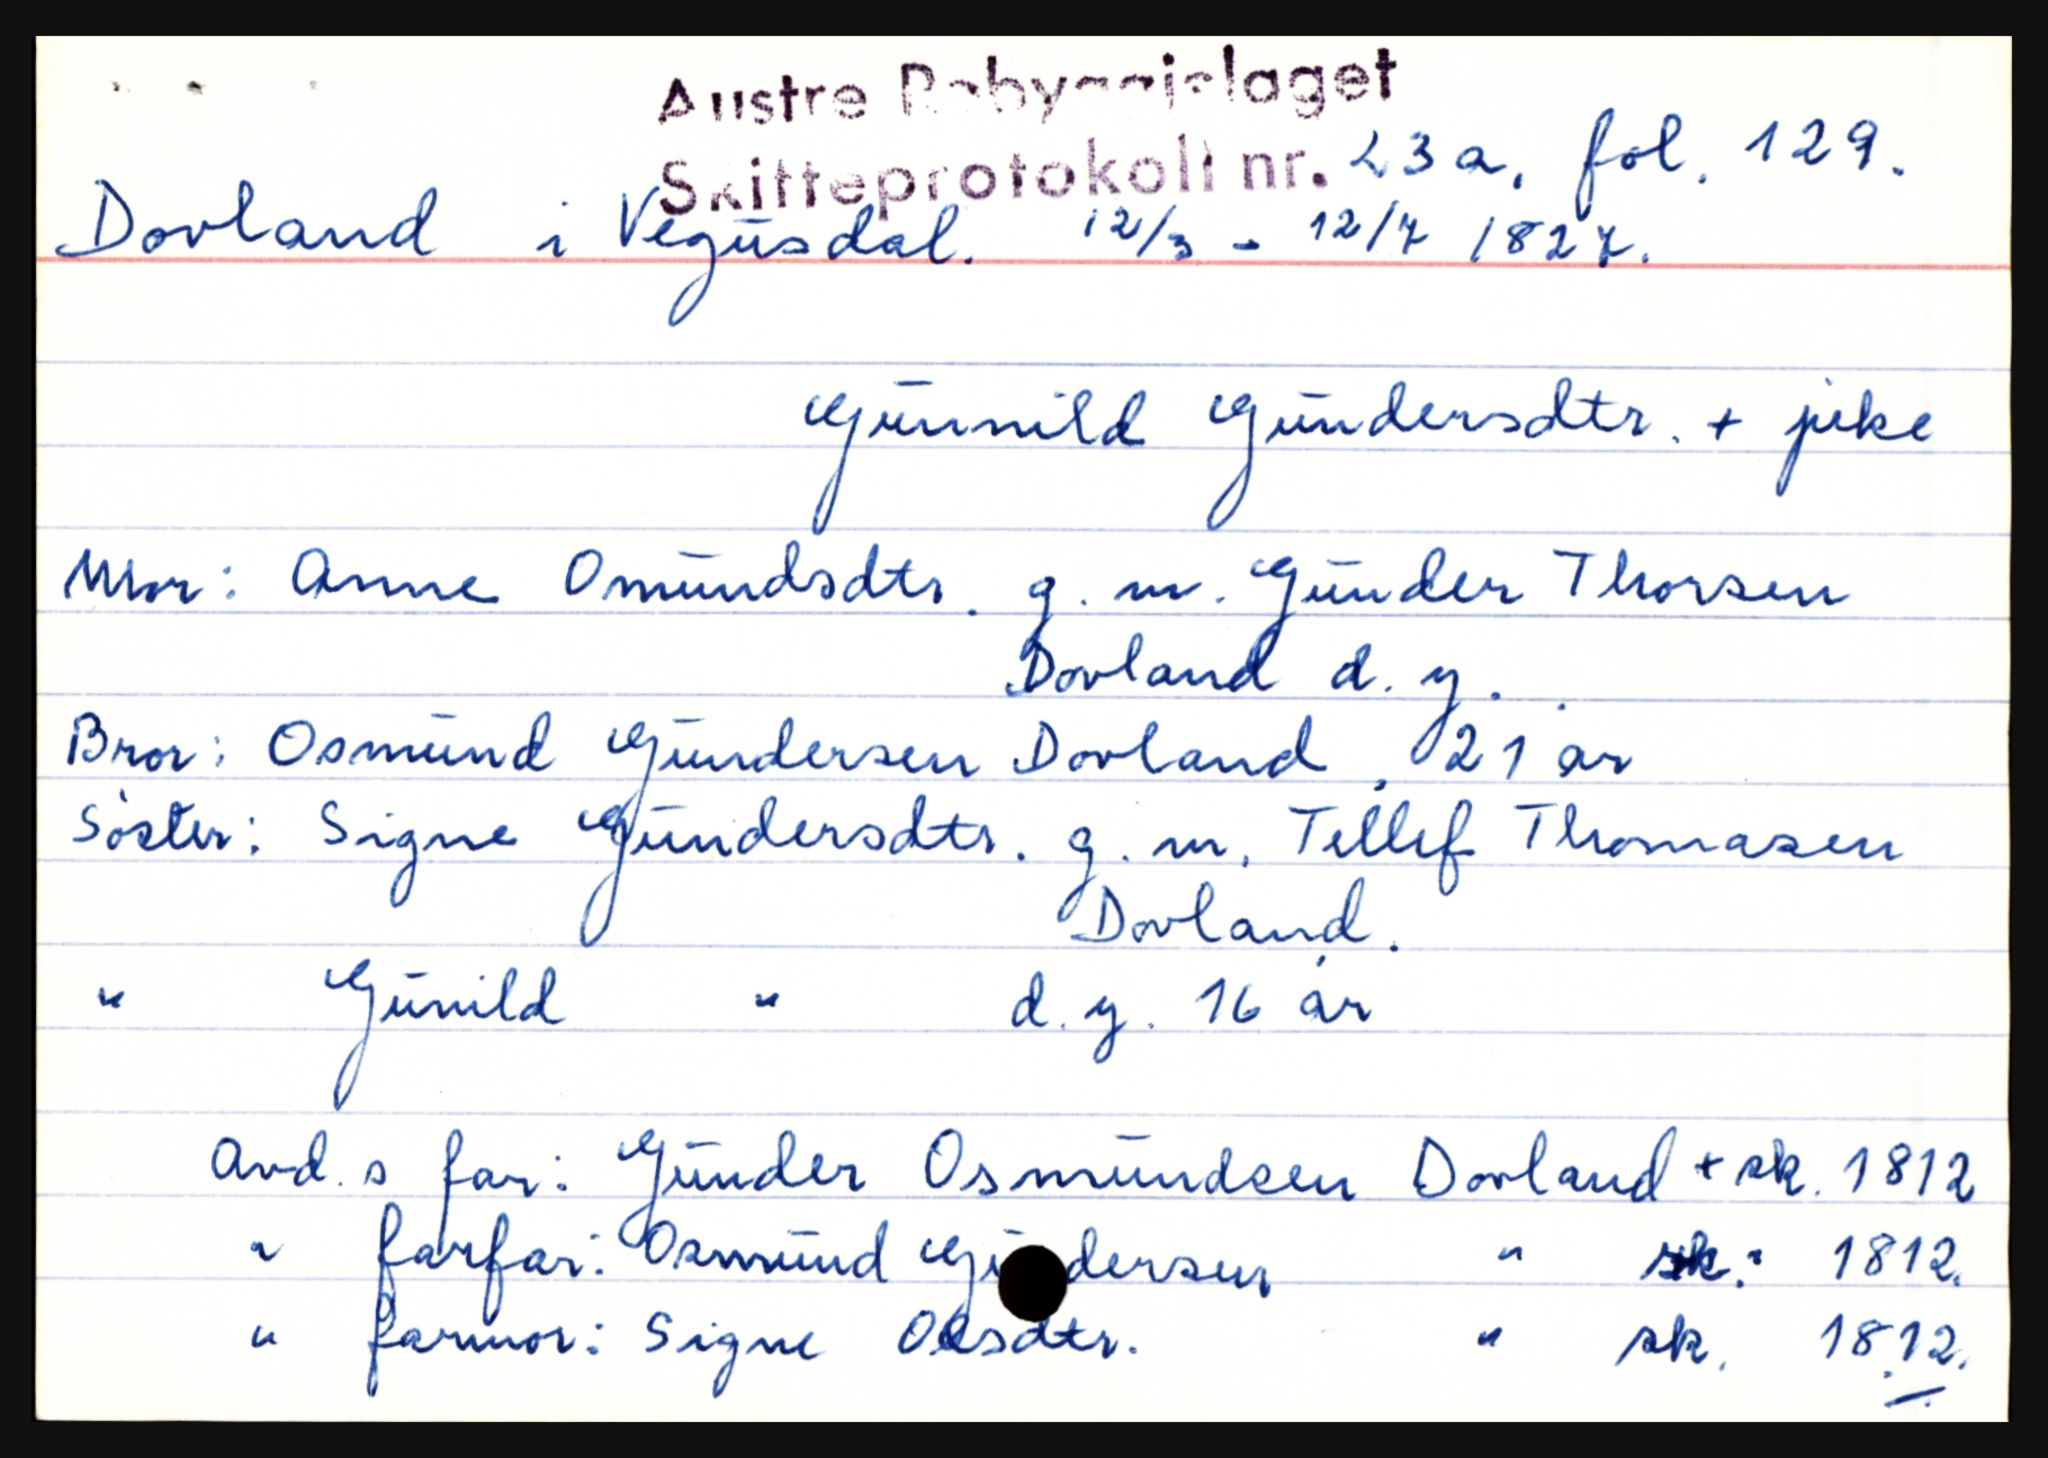 Austre Råbyggjelaget
Skifteprotokoll nr. 23a, fol. 129.
Dovland i Vegusdal. 12/3 - 12/7 1827.
Gunnild Gundersdtr. + pike
Mor: Anne Omundsdtr. g. m. Gunder Thorsen
Dovland d. y.
Bror: Osmund Gundersen Dovland, 21 år
Söster: Signe Gundersdtr. g. m. Tellef Thomasen
Dovland.
" Gunild " d. y. 16 år
Avd. s far: Gunder Osmundsen Dovland + sk. 1812
" farfar: Osmund Gundersen " sk. 1812.
" farmor: Signe Olsdtr. " sk. 1812.